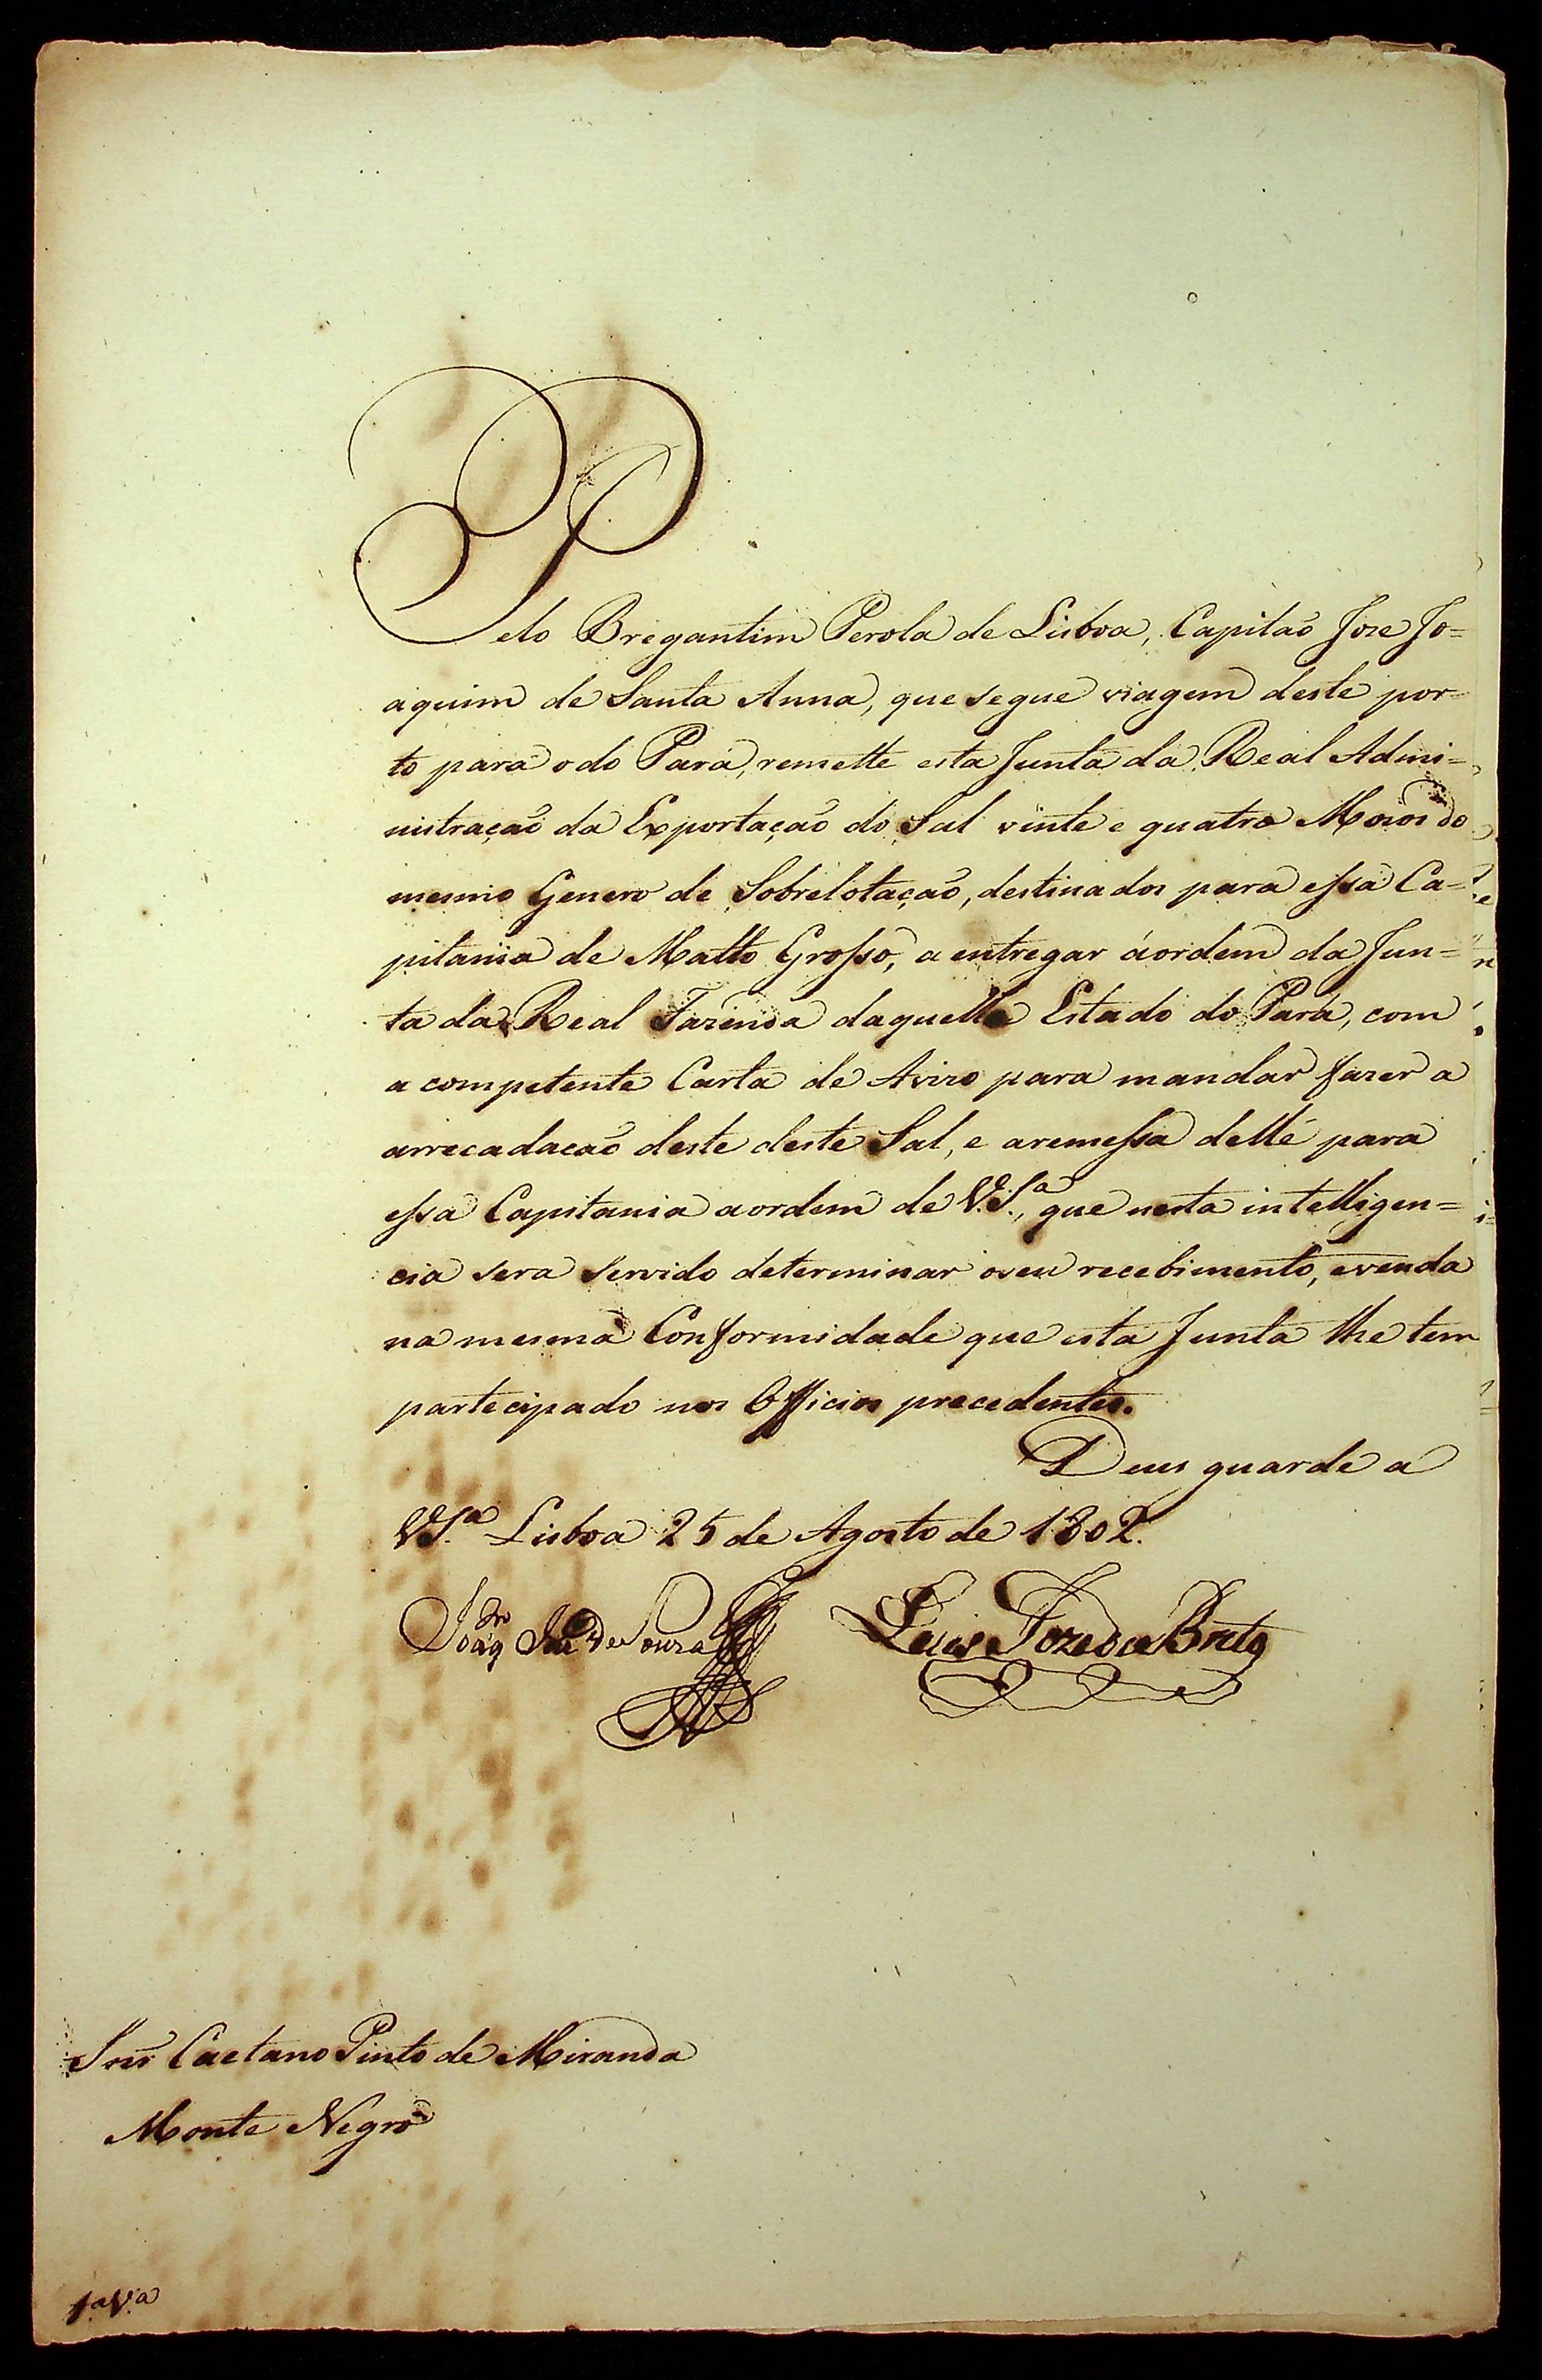 Pelo Bregantim Perola de Lisboa, Capitaõ Joze Jo=
aquim de Santa Anna, que segue viagem deste por=
to para o do Pará, remette esta Junta da Real Admi=
nistraçaõ da Exportaçaõ do Sal vinte e quatro Moios do
mesmo Genero de Sobrelotaçaõ, destinados para essa Ca=
pitania de Matto Grosso, a entregar áordem da Jun=
ta da Real Fazenda daquelle Estado do Pará, com
a competente Carta de Avizo para mandar fazer a
arrecadacaõ deste deste Sal, e aremessa delle para
essa Capitania aordem de V.S.ª, que nesta intelligen=
cia sera servido determinar oseu recebimento, evenda
na mesma Conformidade que esta Junta lhe tem
partecipado nos Officios precedentes.
Deus guarde a
V.S.ª Lisboa 25 de Agosto de 1802.
Joaq de Souza Luis Joze de Brito
Snr Caetano Pinto de Miranda
Monte Negro
1.ª V.ª